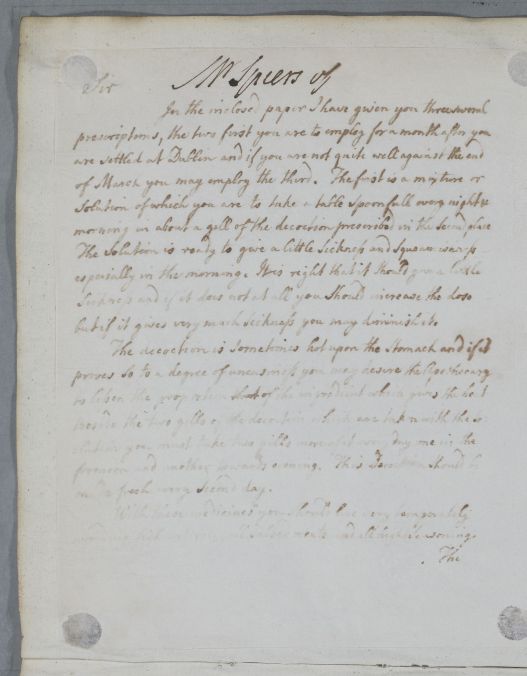 Mr Speers of
Sir
In the inclosed paper I have given you three several
prescriptions, the two first you are to employ for a month after you
are settled at Dublin and if you are not quite well against the end
of March you may employ the third. The first is a mixture or
Solution of which you are to take a table spoonfull every night &
morning in about a gill of the decoction prescribed in the Second place
The Solution is ready to give a little Sickness and Squeamishness
especially in the morning. It is right that it should give a little
Sickness and if it does not at all you should increase the dose
but if it gives very much Sickness you may diminish it.
The decoction is Sometimes hot upon the Stomach and if it
proves so to a degree of uneasiness you may desire the Apothecary
to lessen the proportion of the ingredient which gives the heat
beside the two gills of the decoction which are taken with the So
lution you must take two gills more every day one in the
forenoon and another towards evening. This Decoction should be
made fresh every Second day.
With these medicines you should live very temperately
avoiding salt meats and all high seasoning.
The